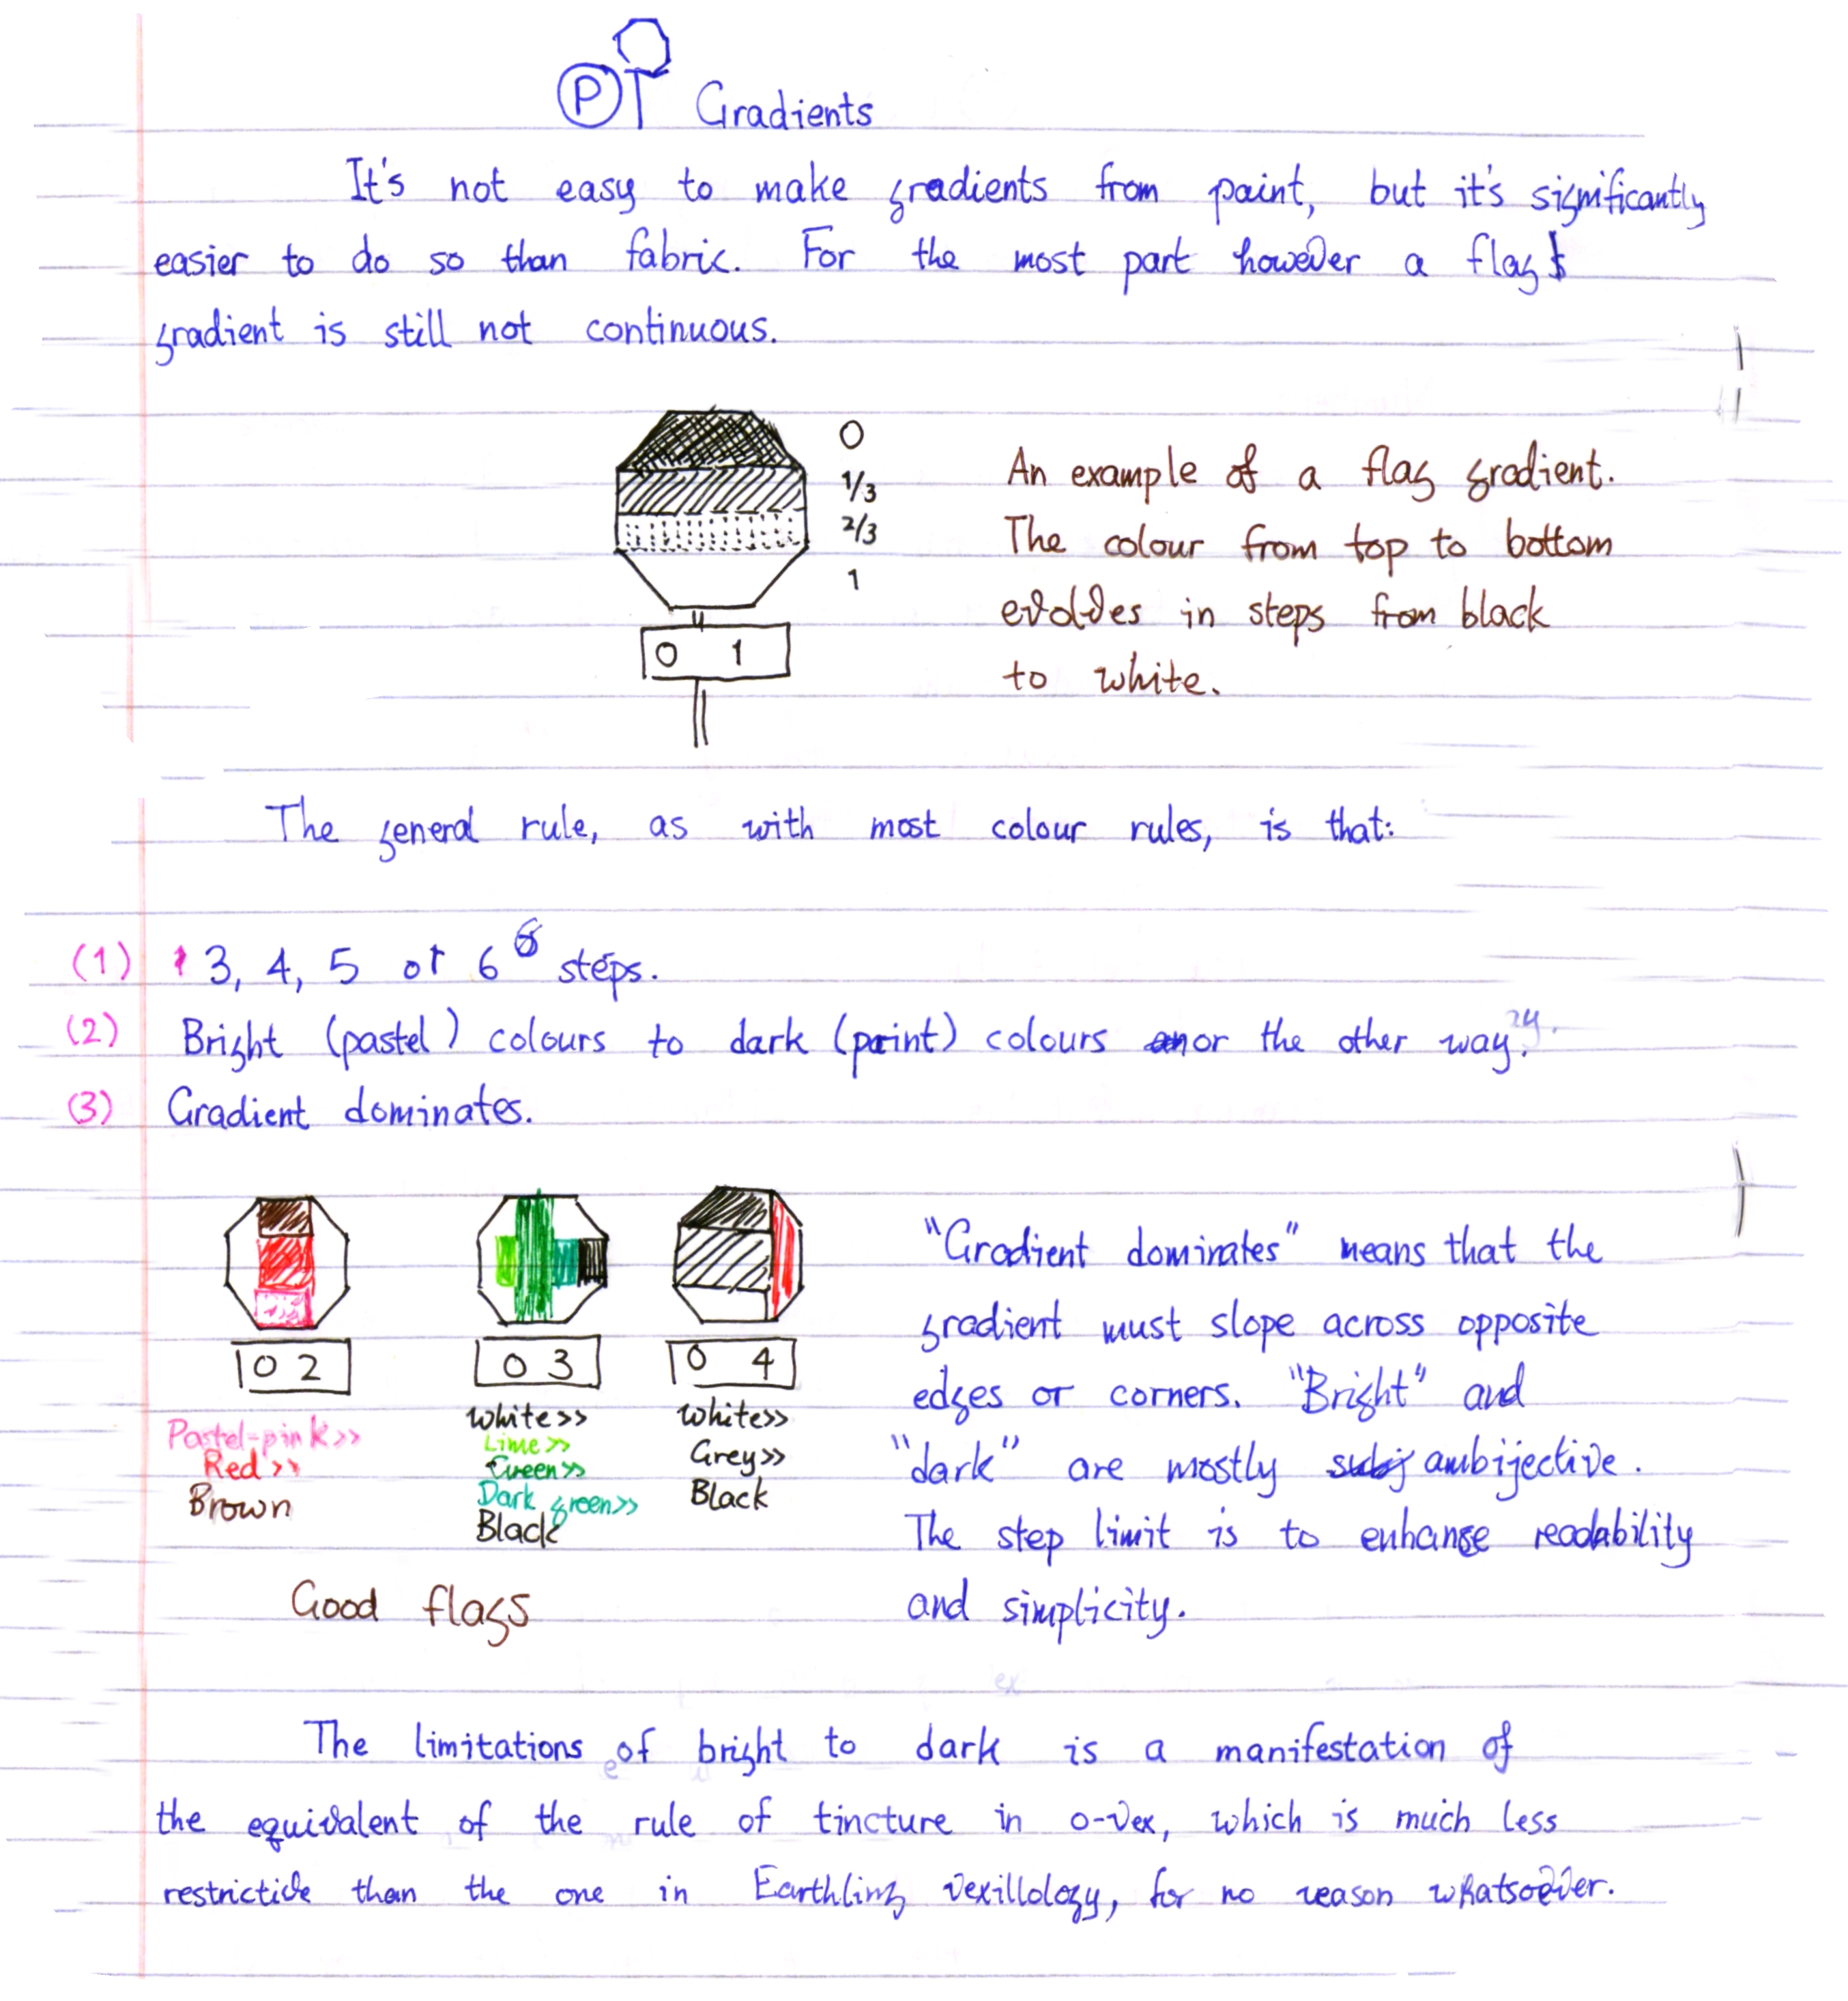 P Gradients
It's not easy to make gradients from paint, but it's significantly
easier to do so than fabric. For the most part however a flag
gradient is still not continuous.
0
1/3
2/3
1
0 1
An example of a flag gradient.
The colour from top to bottom
evolves in steps from black
to white.
The general rule, as with most colour rules, is that:
(1) 3, 4, 5 or 6 steps.
(2) Bright (pastel) colours to dark (paint) colours or the other way.
(3) Gradient dominates.
0 2
Pastel-pink >>
Red >>
Brown
0 3
White >>
Lime >>
Green >>
Dark green >>
Black
0 4
White >>
Grey >>
Black
Good flags
"Gradient dominates" means that the
gradient must slope across opposite
edges or corners. "Bright" and
"dark" are mostly ambijective.
The step limit is to enhanse readability
and simplicity.
The limitations of bright to dark is a manifestation of
the equivalent of the rule of tincture in o-vex, which is much less
restrictive than the one in Earthling vexillology, for no reason whatsoever.